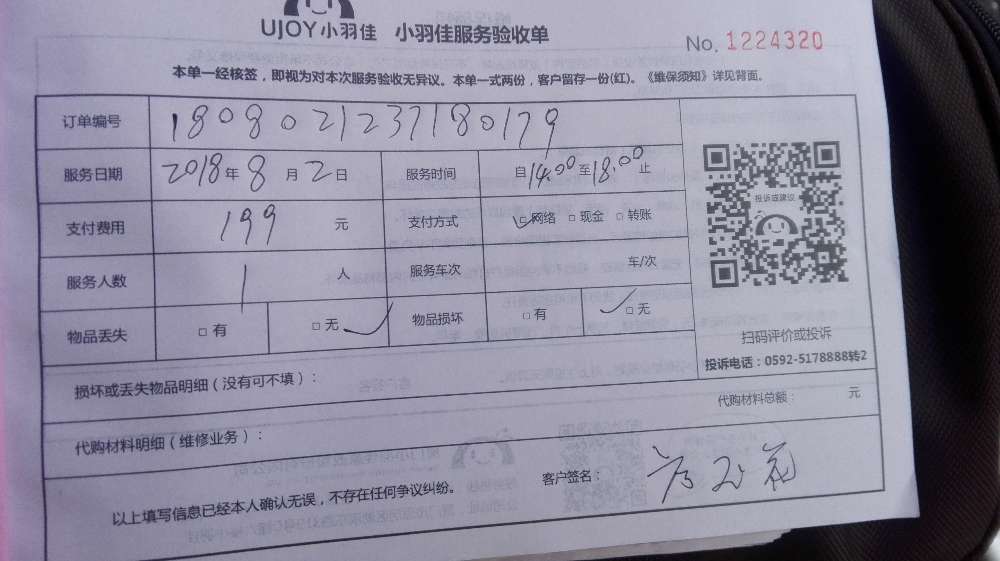 UJOY小羽佳 小羽佳服务验收单
No. 1224320
本单一经核签，即视为对本次服务验收无异议。本单一式两份，客户留存一份(红)。《维保须知》详见背面。
订单编号 1808021237180179
服务日期 2018年8月2日 服务时间 自14:00至18:00止
支付费用 199 元 支付方式 ☑网络 □现金 □转账
服务人数 1 人 服务车次 车/次
物品丢失 □有 □无✓ 物品损坏 □有 ✓□无
投诉或建议
扫码评价或投诉
投诉电话：0592-5178888转2
损坏或丢失物品明细（没有可不填）：
代购材料总额： 元
代购材料明细（维修业务）：
客户签名：
以上填写信息已经本人确认无误，不存在任何争议纠纷。